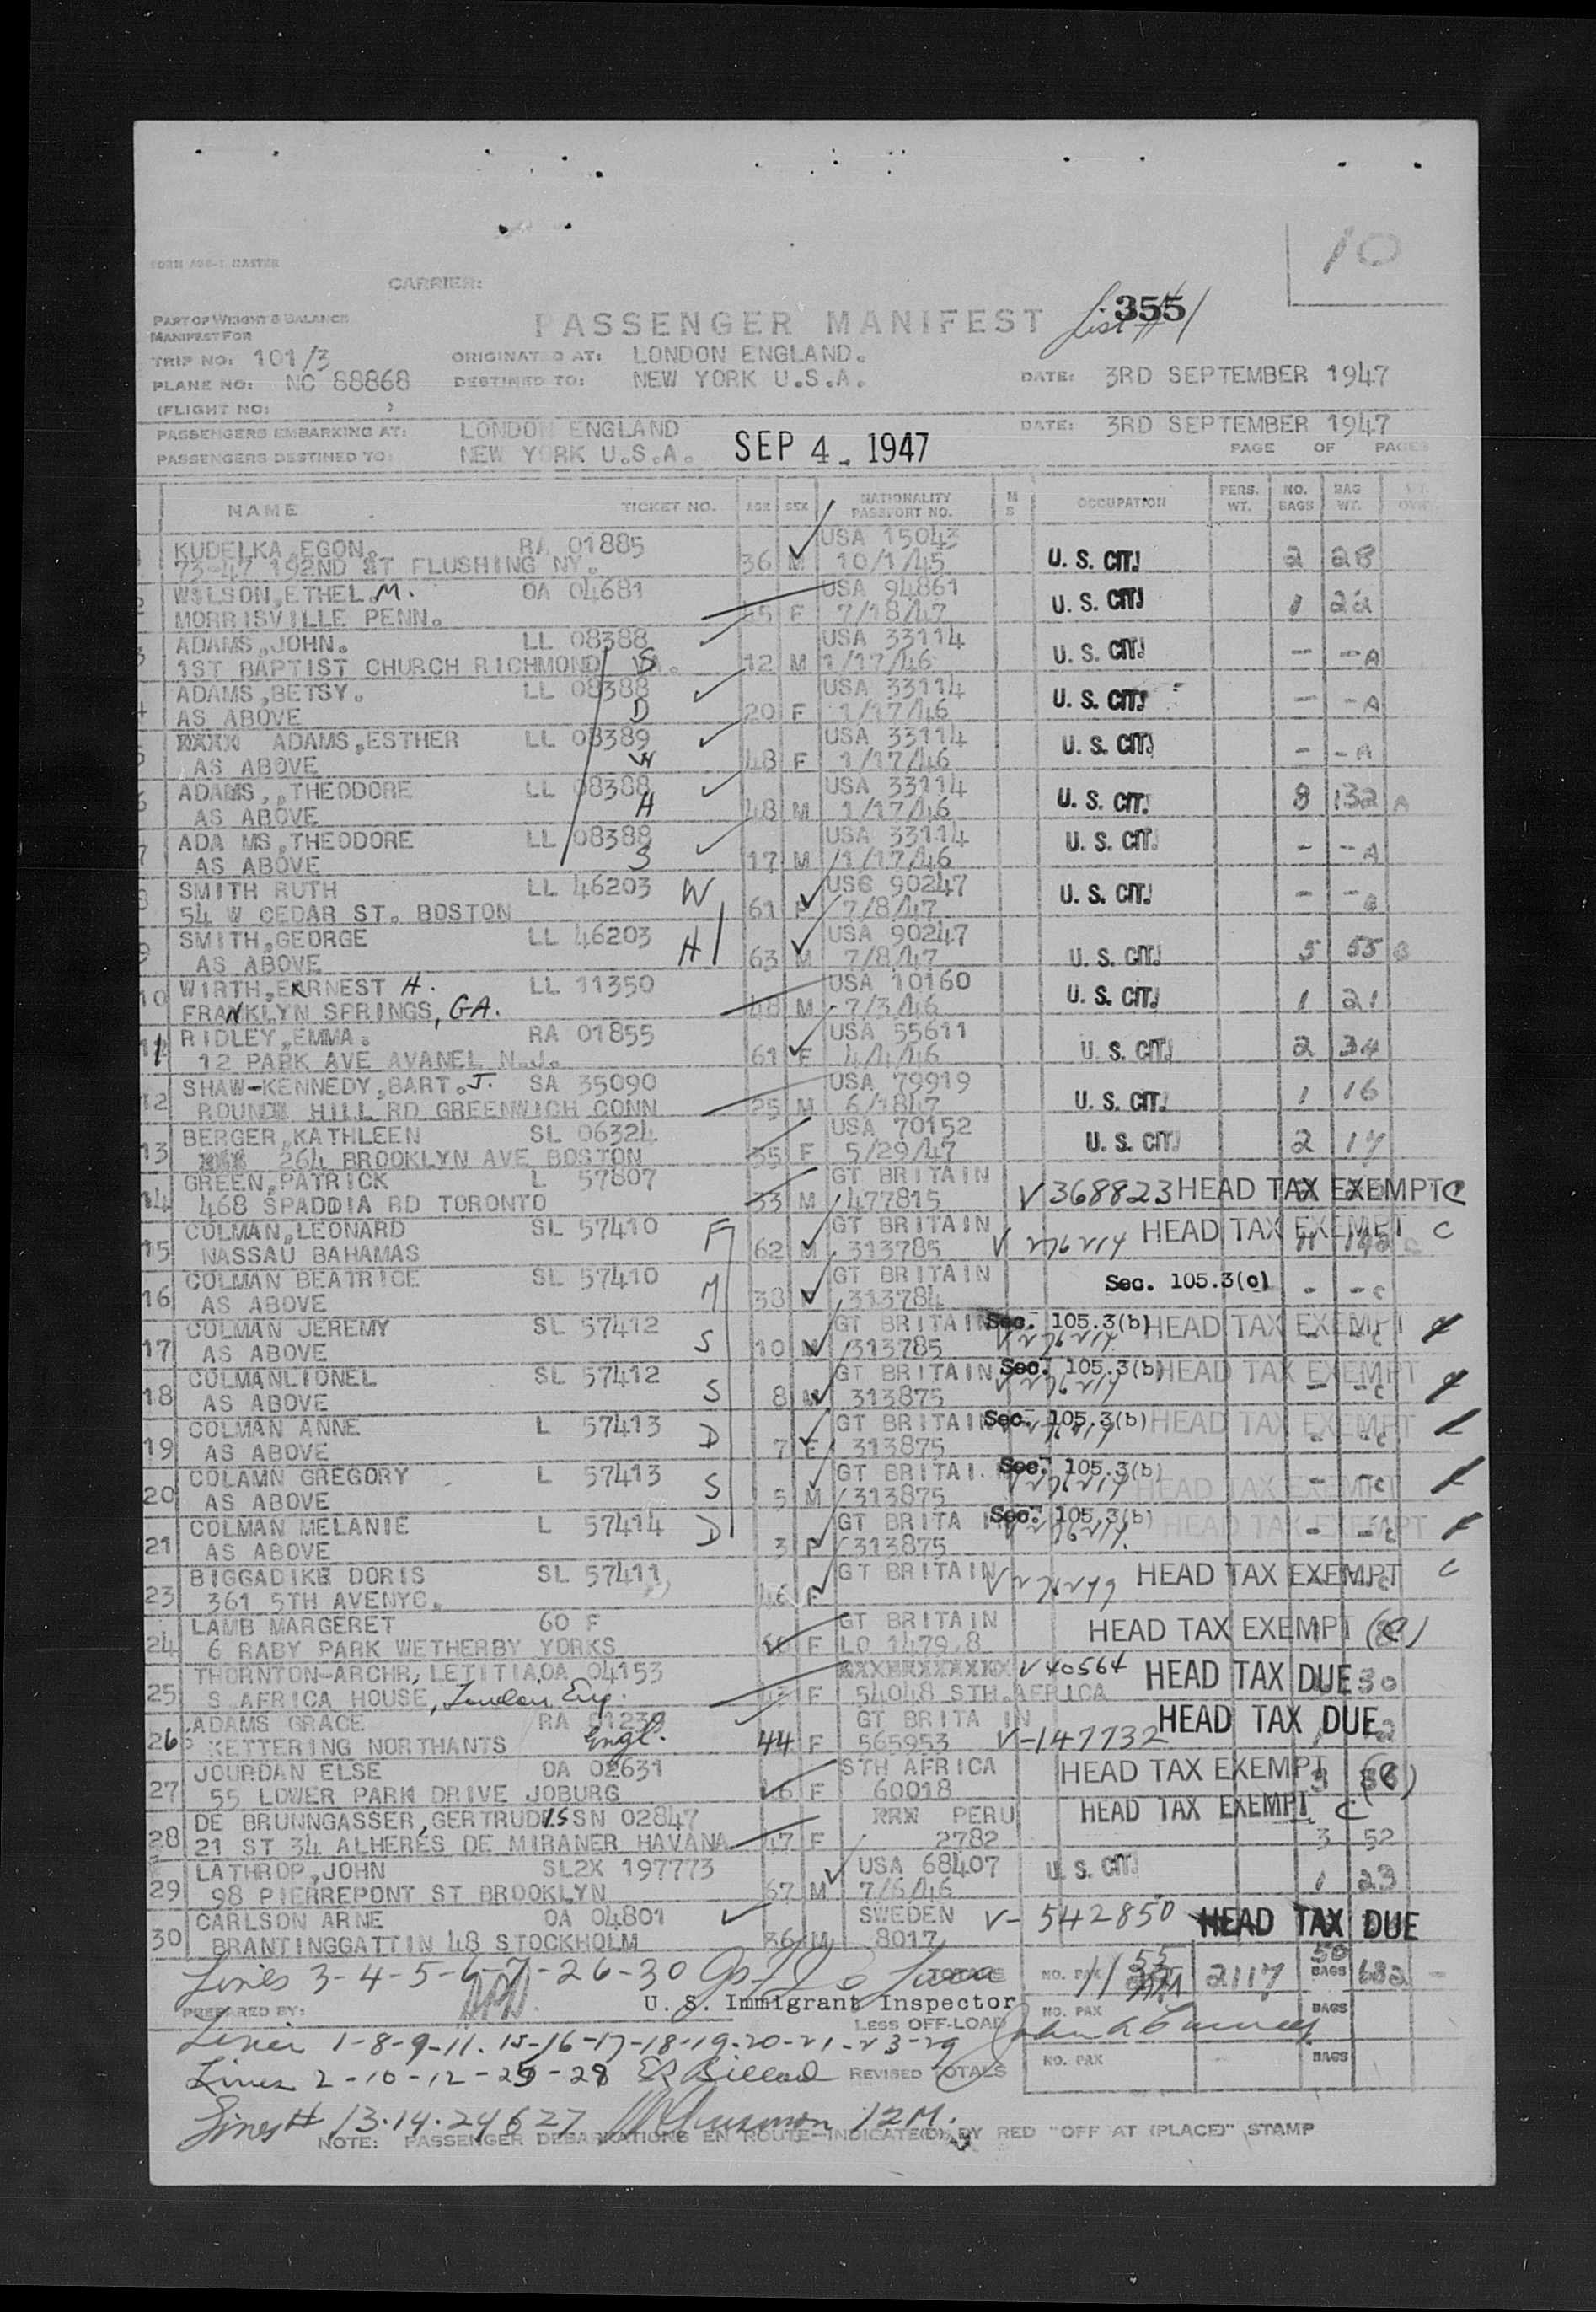 10
FORM
MASTER
CARRIER:
PART OF WEIGHT & BALANCE
MANIFEST FOR
PASSENGER MANIFEST
List #1
355
TRIP NO: 101/3
ORIGINATED AT: LONDON ENGLAND.
PLANE NO: NC 88868
DESTINED TO: NEW YORK U.S.A.
DATE: 3RD SEPTEMBER 1947
(FLIGHT NO: )
PASSENGERS EMBARKING AT: LONDON ENGLAND
DATE: 3RD SEPTEMBER 1947
PASSENGERS DESTINED TO: NEW YORK U.S.A.
SEP 4 - 1947
PAGE OF PAGES
NAME TICKET NO. AGE SEX NATIONALITY PASSPORT NO. M S OCCUPATION PERS. WT. NO. BAGS BAG WT.
KUDELKA,EGON. RA 01885 USA 15043
73-47 192ND ST FLUSHING NY. 36 M 10/1/45 U. S. CIT. 2 28
WILSON,ETHEL.M. OA 04681 USA 94861
MORRISVILLE PENN. F 7/18/47 U. S. CIT. 1 22
ADAMS,JOHN. LL 08388 USA 33114
1ST BAPTIST CHURCH RICHMOND VA. S 12 M 1/17/46 U. S. CIT. - - A
ADAMS,BETSY. LL 08388 USA 33114
AS ABOVE D 20 F 1/17/46 U. S. CIT. - - A
XXXX ADAMS,ESTHER LL 08389 USA 33114
AS ABOVE W 48 F 1/17/46 U. S. CIT. - - A
ADAMS,,THEODORE LL 08388 USA 33114
AS ABOVE H 48 M 1/17/46 U. S. CIT. 8 132 A
7 ADA MS,THEODORE LL 08388 USA 33114
AS ABOVE S 17 M 1/17/46 U. S. CIT. - - A
SMITH RUTH LL 46203 W USS 90247
54 W CEDAR ST. BOSTON 61 F 7/8/47 U. S. CIT. - - B
9 SMITH,GEORGE LL 46203 H USA 90247
AS ABOVE 63 M 7/8/47 U. S. CIT. 5 55 B
10 WIRTH,ERNEST H. LL 11350 USA 10160
FRANKLYN SPRINGS, GA. 48 M 7/3/46 U. S. CIT. 1 21
11 RIDLEY,EMMA. RA 01855 USA 55611
12 PARK AVE AVANEL N.J. 61 F 4/4/46 U. S. CIT. 2 34
12 SHAW-KENNEDY,BART.J. SA 35090 USA 79919
ROUND HILL RD GREENWICH CONN 25 M 6/1847 U. S. CIT. 1 16
13 BERGER,KATHLEEN SL 06324 USA 70152
XXX 264 BROOKLYN AVE BOSTON 35 F 5/29/47 U. S. CIT. 2 17
14 GREEN,PATRICK L 57807 GT BRITAIN
468 SPADDIA RD TORONTO 33 M 477815 V 368823 HEAD TAX EXEMPT C
15 COLMAN,LEONARD SL 57410 F GT BRITAIN
NASSAU BAHAMAS 62 M 313785 V 276214 HEAD TAX EXEMPT C
16 COLMAN BEATRICE SL 57410 M GT BRITAIN
AS ABOVE 38 313784 Sec. 105.3(c) - - c
17 COLMAN JEREMY SL 57412 S GT BRITAIN Sec. 105.3(b) HEAD TAX EXEMPT
AS ABOVE 10 M 313785 V 276214
18 COLMANLIONEL SL 57412 S GT BRITAIN Sec. 105.3(b) HEAD TAX EXEMPT
AS ABOVE 8 M 313875 V 276214
19 COLMAN ANNE L 57413 D GT BRITAIN Sec. 105.3(b) HEAD TAX EXEMPT
AS ABOVE 7 F 313875 V 276214
20 COLAMN GREGORY L 57413 S GT BRITAI. Sec. 105.3(b)
AS ABOVE 5 M 313875 V 276214 HEAD TAX EXEMPT
21 COLMAN MELANIE L 57414 D GT BRITA IN Sec. 105.3(b) HEAD TAX EXEMPT
AS ABOVE 3 F 313875 V 276214.
23 BIGGADIKE DORIS SL 57411 GT BRITAIN
361 5TH AVENYC. 46 F V 276279 HEAD TAX EXEMPT C
24 LAMB MARGERET 60 F GT BRITAIN
6 RABY PARK WETHERBY YORKS F LO 1479 8 HEAD TAX EXEMPT (C)
25 THORNTON-ARCHR, LETITIA,OA 04153 V 40564 HEAD TAX DUE 30
S AFRICA HOUSE, London, Eng. 43 F 54048 STH.AFRICA
26 ADAMS GRACE RA 01239 GT BRITA IN HEAD TAX DUE
KETTERING NORTHANTS Engl. 44 F 565953 V-147732
27 JOURDAN ELSE OA 02631 STH AFRICA
55 LOWER PARK DRIVE JOBURG F 60018 HEAD TAX EXEMPT (C)
28 DE BRUNNGASSER,GERTRUDIS SN 02847 XXX PERU HEAD TAX EXEMPT C
21 ST 34 ALHERES DE MIRANER HAVANA 47 F 2782 3 52
29 LATHROP,JOHN SL2X 197773 USA 68407
98 PIERREPONT ST BROOKLYN 67 M 7/6/46 U. S. CIT. 1 23
30 CARLSON ARNE OA 04801 SWEDEN V- 542850 HEAD TAX DUE
BRANTINGGATTIN 48 STOCKHOLM 36 M 8017
Lines 3-4-5-6-7-26-30
TOTALS NO. PAX 2117 BAGS 50 682
PREPARED BY:
U. S. Immigrant Inspector
LESS OFF-LOAD NO. PAX BAGS
Lines 1-8-9-11-15-16-17-18-19-20-21-23-29
Lines 2-10-12-25-28
REVISED TOTALS NO. PAX BAGS
Lines # 13-14-24 & 27 12M.
NOTE: PASSENGER DEBARKATIONS EN ROUTE-INDICATE(D) BY RED "OFF AT (PLACE)" STAMP